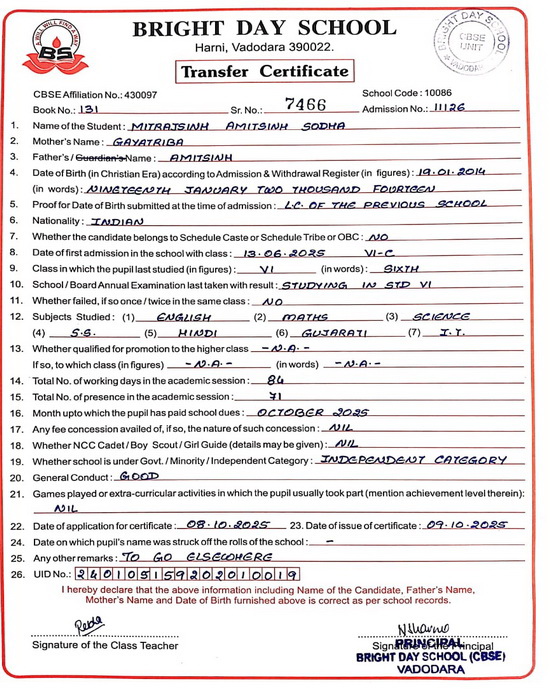 A WILL WILL FIND A WAY
BS
BRIGHT DAY SCHOOL
Harni, Vadodara 390022.
BRIGHT DAY SCHOOL
CBSE
UNIT
VADODARA
Transfer Certificate
CBSE Affiliation No.: 430097 School Code : 10086
Book No.: 131 Sr. No.: 7466 Admission No.: 11126
1. Name of the Student : MITRAJSINH AMITSINH SODHA
2. Mother's Name : GAYATRIBA
3. Father's / Guardian's Name : AMITSINH
4. Date of Birth (in Christian Era) according to Admission & Withdrawal Register (in figures) : 19.01.2014
(in words) : NINETEENTH JANUARY TWO THOUSAND FOURTEEN
5. Proof for Date of Birth submitted at the time of admission : L.C. OF THE PREVIOUS SCHOOL
6. Nationality : INDIAN
7. Whether the candidate belongs to Schedule Caste or Schedule Tribe or OBC : NO
8. Date of first admission in the school with class : 13.06.2025 VI-C
9. Class in which the pupil last studied (in figures) : VI (in words) : SIXTH
10. School / Board Annual Examination last taken with result : STUDYING IN STD VI
11. Whether failed, if so once / twice in the same class : NO
12. Subjects Studied : (1) ENGLISH (2) MATHS (3) SCIENCE
(4) S.S. (5) HINDI (6) GUJARATI (7) I.T.
13. Whether qualified for promotion to the higher class - N.A. -
If so, to which class (in figures) - N.A. - (in words) - N.A. -
14. Total No. of working days in the academic session : 84
15. Total No. of presence in the academic session : 71
16. Month upto which the pupil has paid school dues : OCTOBER 2025
17. Any fee concession availed of, if so, the nature of such concession : NIL
18. Whether NCC Cadet / Boy Scout / Girl Guide (details may be given) : NIL
19. Whether school is under Govt. / Minority / Independent Category : INDEPENDENT CATEGORY
20. General Conduct : GOOD
21. Games played or extra-curricular activities in which the pupil usually took part (mention achievement level therein) :
NIL
22. Date of application for certificate : 08.10.2025 23. Date of issue of certificate : 09.10.2025
24. Date on which pupil's name was struck off the rolls of the school : -
25. Any other remarks : TO GO ELSEWHERE
26. UID No.: 240105159202010019
I hereby declare that the above information including Name of the Candidate, Father's Name,
Mother's Name and Date of Birth furnished above is correct as per school records.
Signature of the Class Teacher Signature of the Principal
PRINCIPAL
BRIGHT DAY SCHOOL (CBSE)
VADODARA